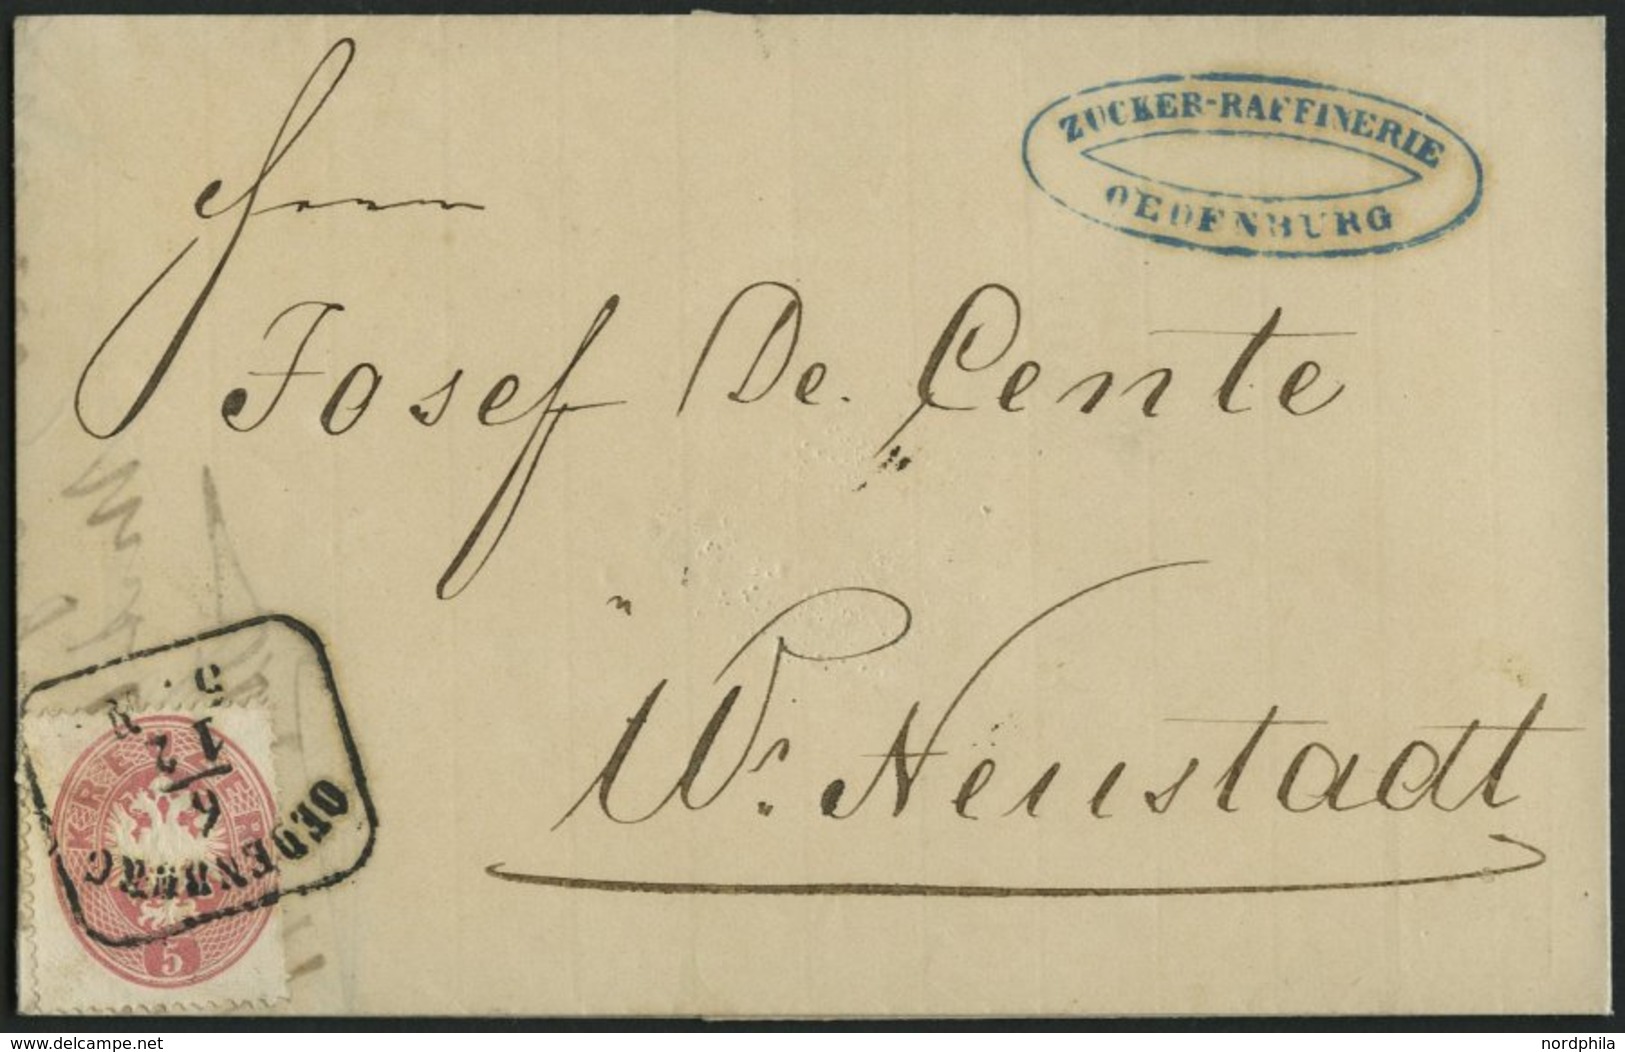 ZUCKER-RAFFINERIE
OEDENBURG
Herrn
Josef De. Cente
Wr. Neustadt
OEDENBURG
6/2
1.5
KREUZER
5
www.delcampe.net
nordphila